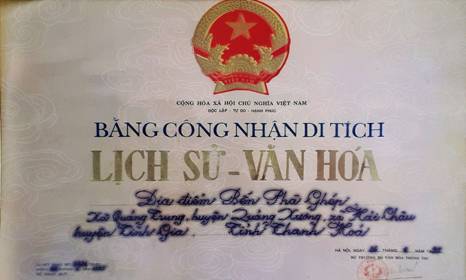 VIỆT NAM
CỘNG HÒA XÃ HỘI CHỦ NGHĨA VIỆT NAM
ĐỘC LẬP - TỰ DO - HẠNH PHÚC
BẰNG CÔNG NHẬN DI TÍCH
LỊCH SỬ - VĂN HÓA
Địa điểm Bến Phà Ghép
Xã Quảng Trung, huyện Quảng Xương, xã Hải Châu
huyện Tĩnh Gia, Tỉnh Thanh Hoá
HÀ NỘI, ngày tháng năm
BỘ TRƯỞNG BỘ VĂN HÓA THÔNG TIN